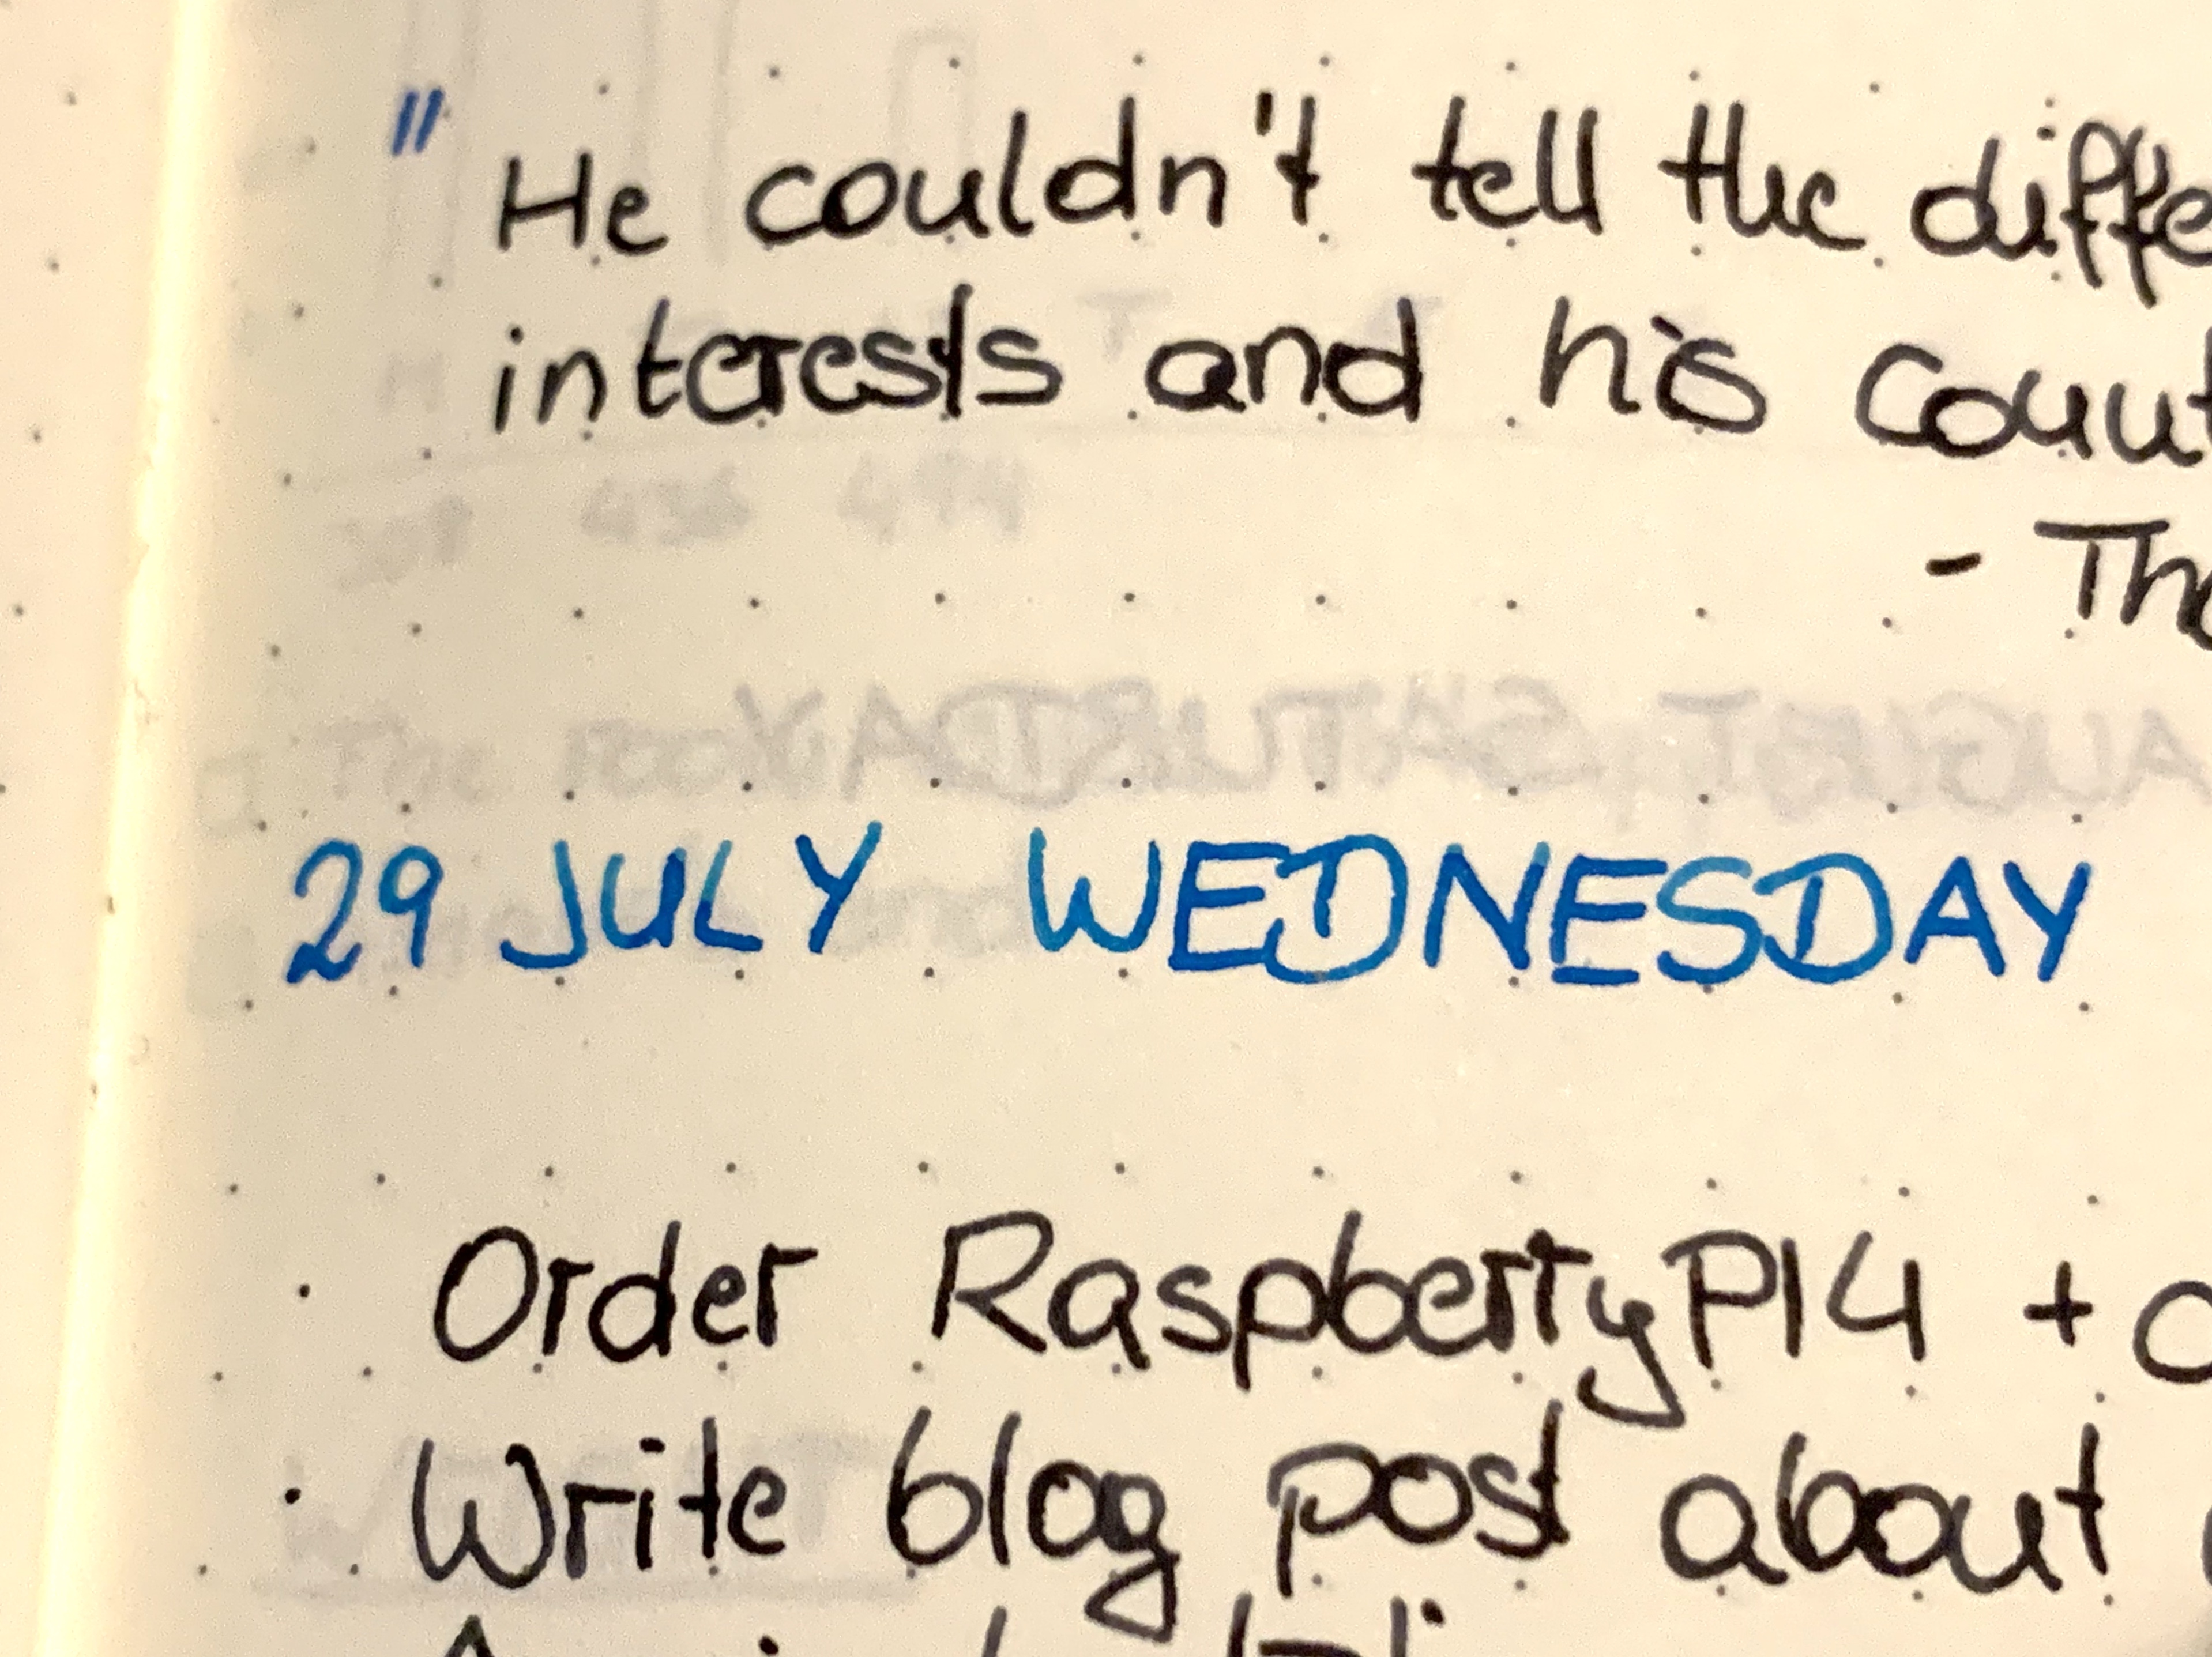 " He couldn't tell the diffe
interests and his count
- Th
29 JULY WEDNESDAY
· Order RaspberryPI4 +
· Write blog post about